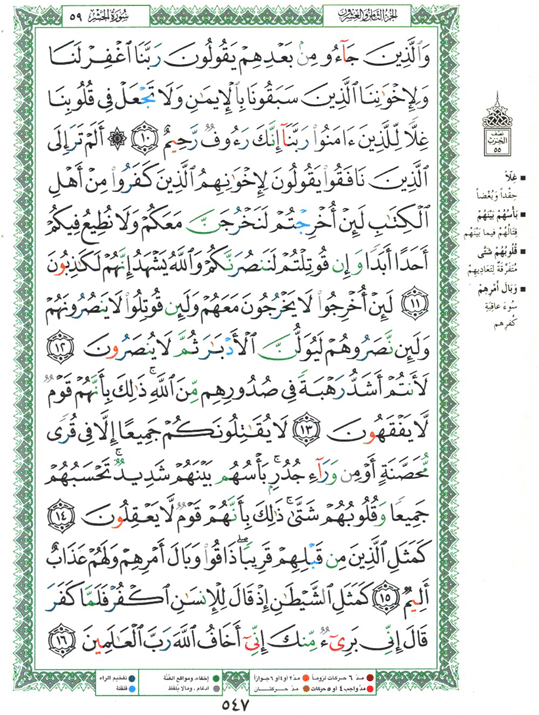 سُورَةُ الحَشْرِ ٥٩
الجُزءُ الثَّامِنُ وَالعِشْرُونَ
وَالَّذِينَ جَآءُو مِنۢ بَعْدِهِمْ يَقُولُونَ رَبَّنَا ٱغْفِرْ لَنَا
وَلِإِخْوَٰنِنَا ٱلَّذِينَ سَبَقُونَا بِٱلْإِيمَٰنِ وَلَا تَجْعَلْ فِى قُلُوبِنَا
غِلًّا لِّلَّذِينَ ءَامَنُوا۟ رَبَّنَآ إِنَّكَ رَءُوفٌ رَّحِيمٌ ١٠ ۞ أَلَمْ تَرَ إِلَى
ٱلَّذِينَ نَافَقُوا۟ يَقُولُونَ لِإِخْوَٰنِهِمُ ٱلَّذِينَ كَفَرُوا۟ مِنْ أَهْلِ
ٱلْكِتَٰبِ لَئِنْ أُخْرِجْتُمْ لَنَخْرُجَنَّ مَعَكُمْ وَلَا نُطِيعُ فِيكُمْ
أَحَدًا أَبَدًا وَإِن قُوتِلْتُمْ لَنَنصُرَنَّكُمْ وَٱللَّهُ يَشْهَدُ إِنَّهُمْ لَكَٰذِبُونَ
١١ لَئِنْ أُخْرِجُوا۟ لَا يَخْرُجُونَ مَعَهُمْ وَلَئِن قُوتِلُوا۟ لَا يَنصُرُونَهُمْ
وَلَئِن نَّصَرُوهُمْ لَيُوَلُّنَّ ٱلْأَدْبَٰرَ ثُمَّ لَا يُنصَرُونَ ١٢
لَأَنتُمْ أَشَدُّ رَهْبَةً فِى صُدُورِهِم مِّنَ ٱللَّهِ ۚ ذَٰلِكَ بِأَنَّهُمْ قَوْمٌ
لَّا يَفْقَهُونَ ١٣ لَا يُقَٰتِلُونَكُمْ جَمِيعًا إِلَّا فِى قُرًى
مُّحَصَّنَةٍ أَوْ مِن وَرَآءِ جُدُرٍۭ ۚ بَأْسُهُم بَيْنَهُمْ شَدِيدٌ ۚ تَحْسَبُهُمْ
جَمِيعًا وَقُلُوبُهُمْ شَتَّىٰ ۚ ذَٰلِكَ بِأَنَّهُمْ قَوْمٌ لَّا يَعْقِلُونَ ١٤
كَمَثَلِ ٱلَّذِينَ مِن قَبْلِهِمْ قَرِيبًا ۖ ذَاقُوا۟ وَبَالَ أَمْرِهِمْ وَلَهُمْ عَذَابٌ
أَلِيمٌ ١٥ كَمَثَلِ ٱلشَّيْطَٰنِ إِذْ قَالَ لِلْإِنسَٰنِ ٱكْفُرْ فَلَمَّا كَفَرَ
قَالَ إِنِّى بَرِىٓءٌ مِّنكَ إِنِّىٓ أَخَافُ ٱللَّهَ رَبَّ ٱلْعَٰلَمِينَ ١٦
نصف
الحزب
٥٥
غِلًّا
حِقْداً وَبُغْضاً
بَأْسُهُمْ بَيْنَهُمْ
قِتَالُهُمْ فِيما بَيْنَهُمْ
قُلُوبُهُمْ شَتَّى
مُتَفَرِّقَةٌ لِتَعَادِيهِمْ
وَبَالَ أَمْرِهِمْ
سُوءَ عاقِبَةِ
كُفْرِهِم
مدّ ٦ حركات لزوماً
مدّ ٢ أو ٤ أو ٦ جوازاً
إخفاء، ومواقع الغُنَّة
تفخيم الراء
مدّ واجب ٤ أو ٥ حركات
مدّ حركتــان
إدغام، ومالا يُلفظ
قلقلة
٥٤٧